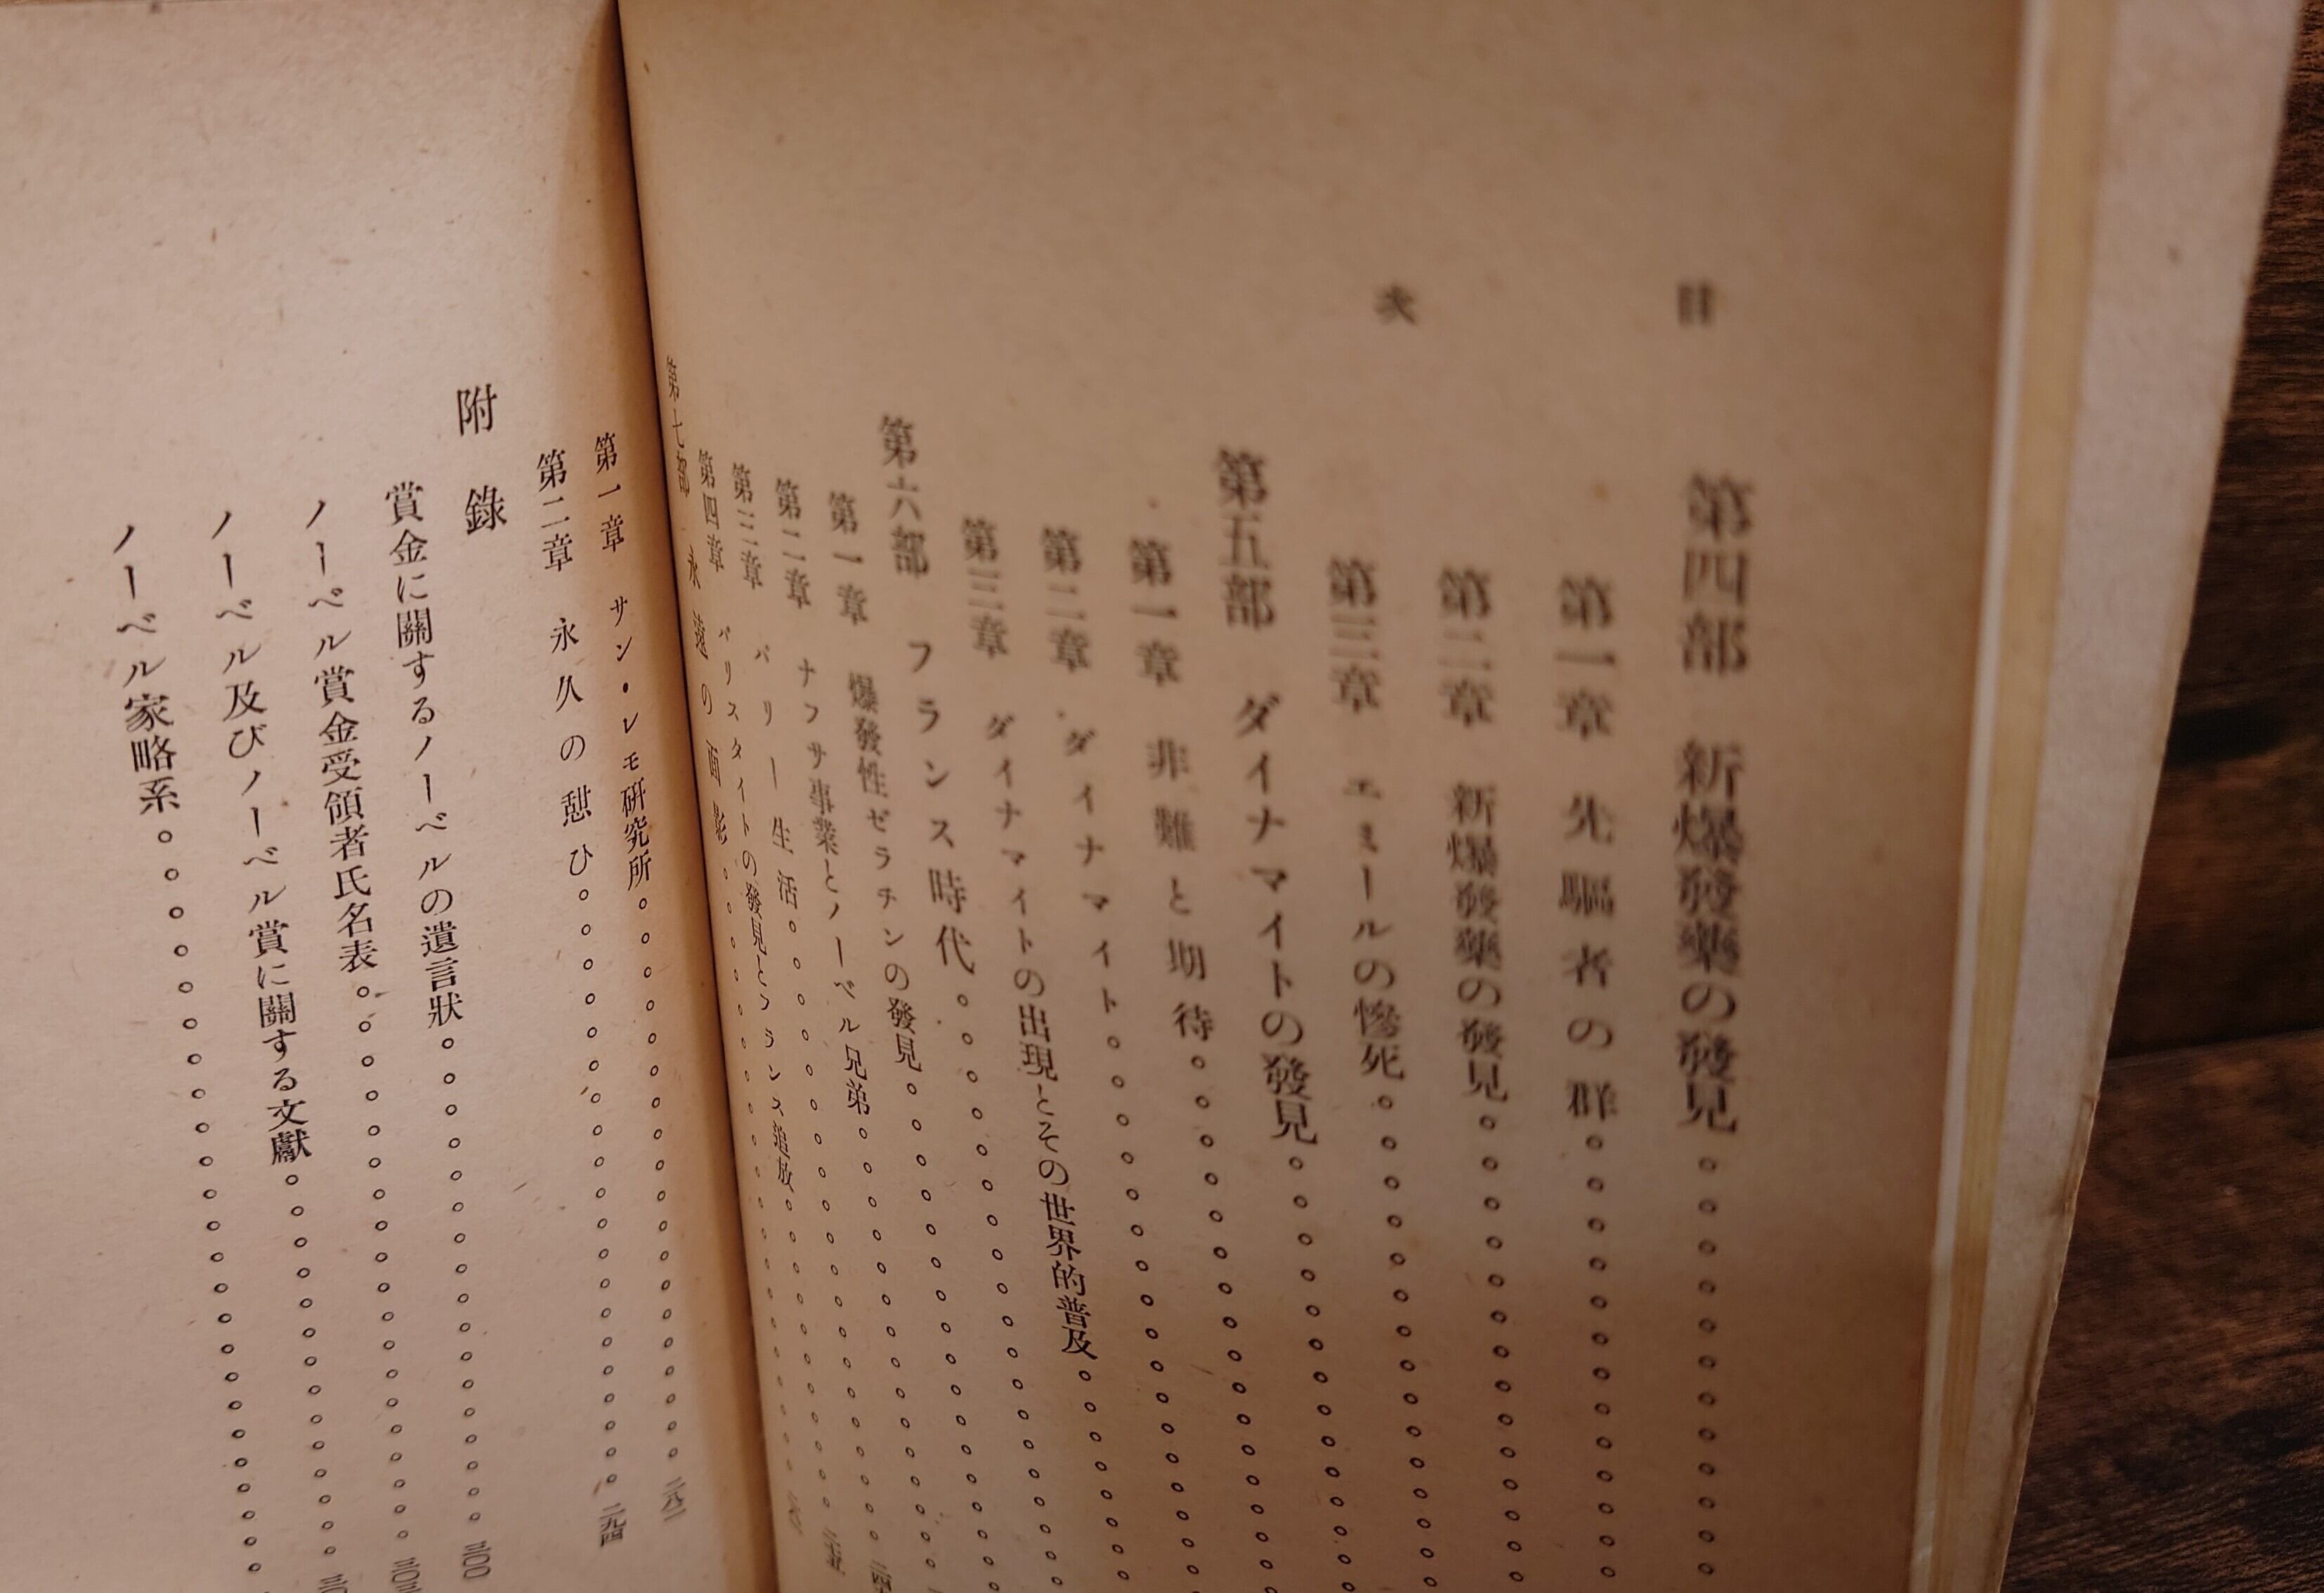 目次
第四部 新爆發藥の發見
第一章 先驅者の群
第二章 新爆發藥の發見
第三章 エミールの慘死
第五部 ダイナマイトの發見
第一章 非難と期待
第二章 ダイナマイト
第三章 ダイナマイトの出現とその世界的普及
第六部 フランス時代
第一章 爆發性ゼラチンの發見
第二章 ナフサ事業とノーベル兄弟
第三章 パリー生活
第四章 バリスタイトの發見とフランス追放
第七部 永遠の面影
第一章 サン・レモ硏究所 二八一
第二章 永久の憩ひ 二九四
附錄
賞金に關するノーベルの遺言狀 三〇〇
ノーベル賞金受領者氏名表
ノーベル及びノーベル賞に關する文獻
ノーベル家略系